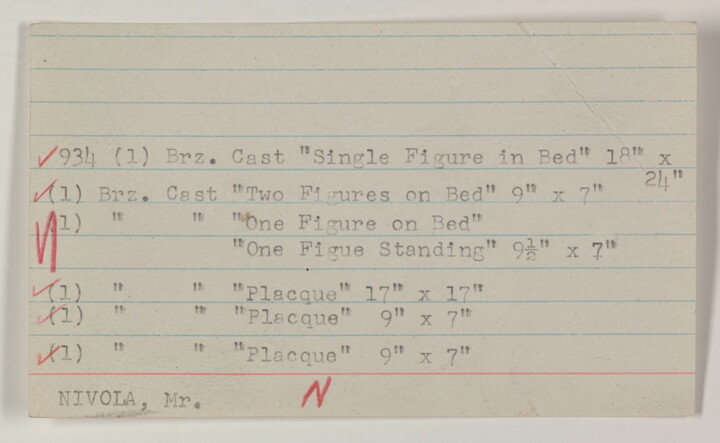 ✓934 (1) Brz. Cast "Single Figure in Bed" 18" x
24"
✓(1) Brz. Cast "Two Figures on Bed" 9" x 7"
(1) " " "One Figure on Bed"
"One Figue Standing" 9½" x 7"
✓(1) " " "Placque" 17" x 17"
✓(1) " " "Placque" 9" x 7"
✓(1) " " "Placque" 9" x 7"
NIVOLA, Mr. N